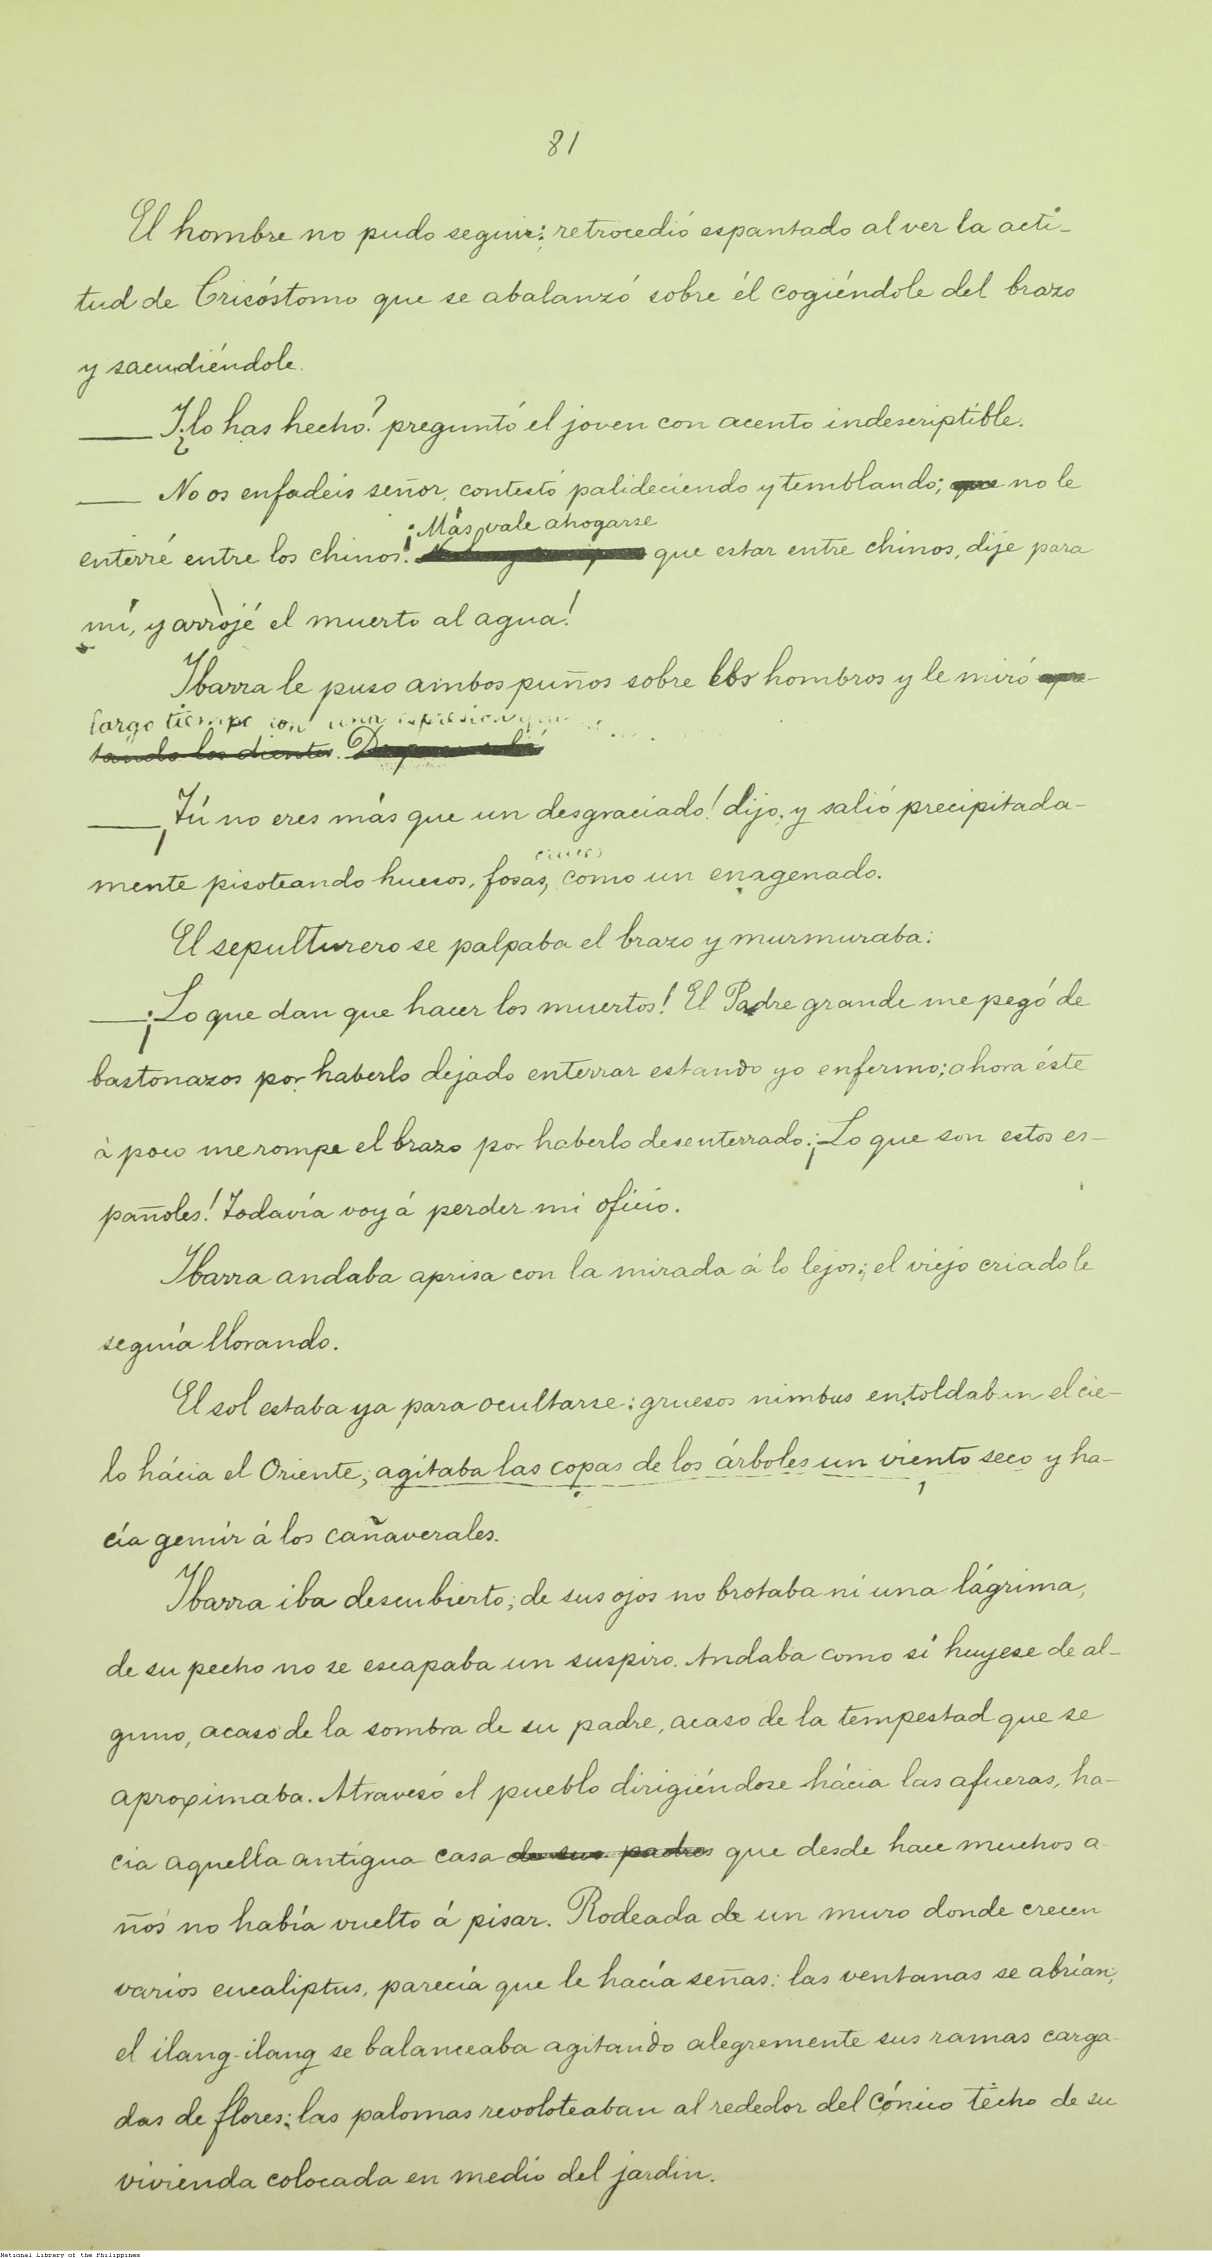 81
El hombre no pudo seguir; retrocedió espantado al ver la acti-
tud de Crisóstomo que se abalanzó sobre él cogiéndole del brazo
y sacudiéndole.
— ¿Y lo has hecho? preguntó el joven con acento indescriptible.
— No os enfadeis señor, contestó palideciendo y temblando; que no le
¡Más vale ahogarse
enterré entre los chinos! que estar entre chinos, dije para
mí, y arrojé el muerto al agua!
Ibarra le puso ambos puños sobre los hombros y le miró apre-
largo tiempo con una espresion
tando los dientes.
— ¡Tú no eres más que un desgraciado! dijo, y salió precipitada-
cruces
mente pisoteando huesos, fosas, como un enagenado.
El sepulturero se palpaba el brazo y murmuraba:
— ¡Lo que dan que hacer los muertos! El Padre grande me pegó de
bastonazos por haberlo dejado enterrar estando yo enfermo; ahora éste
á poco me rompe el brazo por haberlo desenterrado. ¡Lo que son estos es-
pañoles! Todavía voy á perder mi oficio.
Ibarra andaba aprisa con la mirada á lo lejos; el viejo criado le
seguía llorando.
El sol estaba ya para ocultarse; gruesos nimbus entoldaban el cie-
lo hácia el Oriente; agitaba las copas de los árboles un viento seco y ha-
cía gemir á los cañaverales.
Ibarra iba descubierto; de sus ojos no brotaba ni una lágrima,
de su pecho no se escapaba un suspiro. Andaba como si huyese de al-
guno, acaso de la sombra de su padre, acaso de la tempestad que se
aproximaba. Atravesó el pueblo dirigiéndose hácia las afueras, ha-
cia aquella antígua casa de sus padres que desde hace muchos a-
ños no había vuelto á pisar. Rodeada de un muro donde crecen
varios eucaliptus, parecía que le hacía señas: las ventanas se abrían;
el ilang-ilang se balanceaba agitando alegremente sus ramas carga-
das de flores; las palomas revoloteaban al rededor del cónico techo de su
vivienda colocada en medio del jardin.
National Library of the Philippines